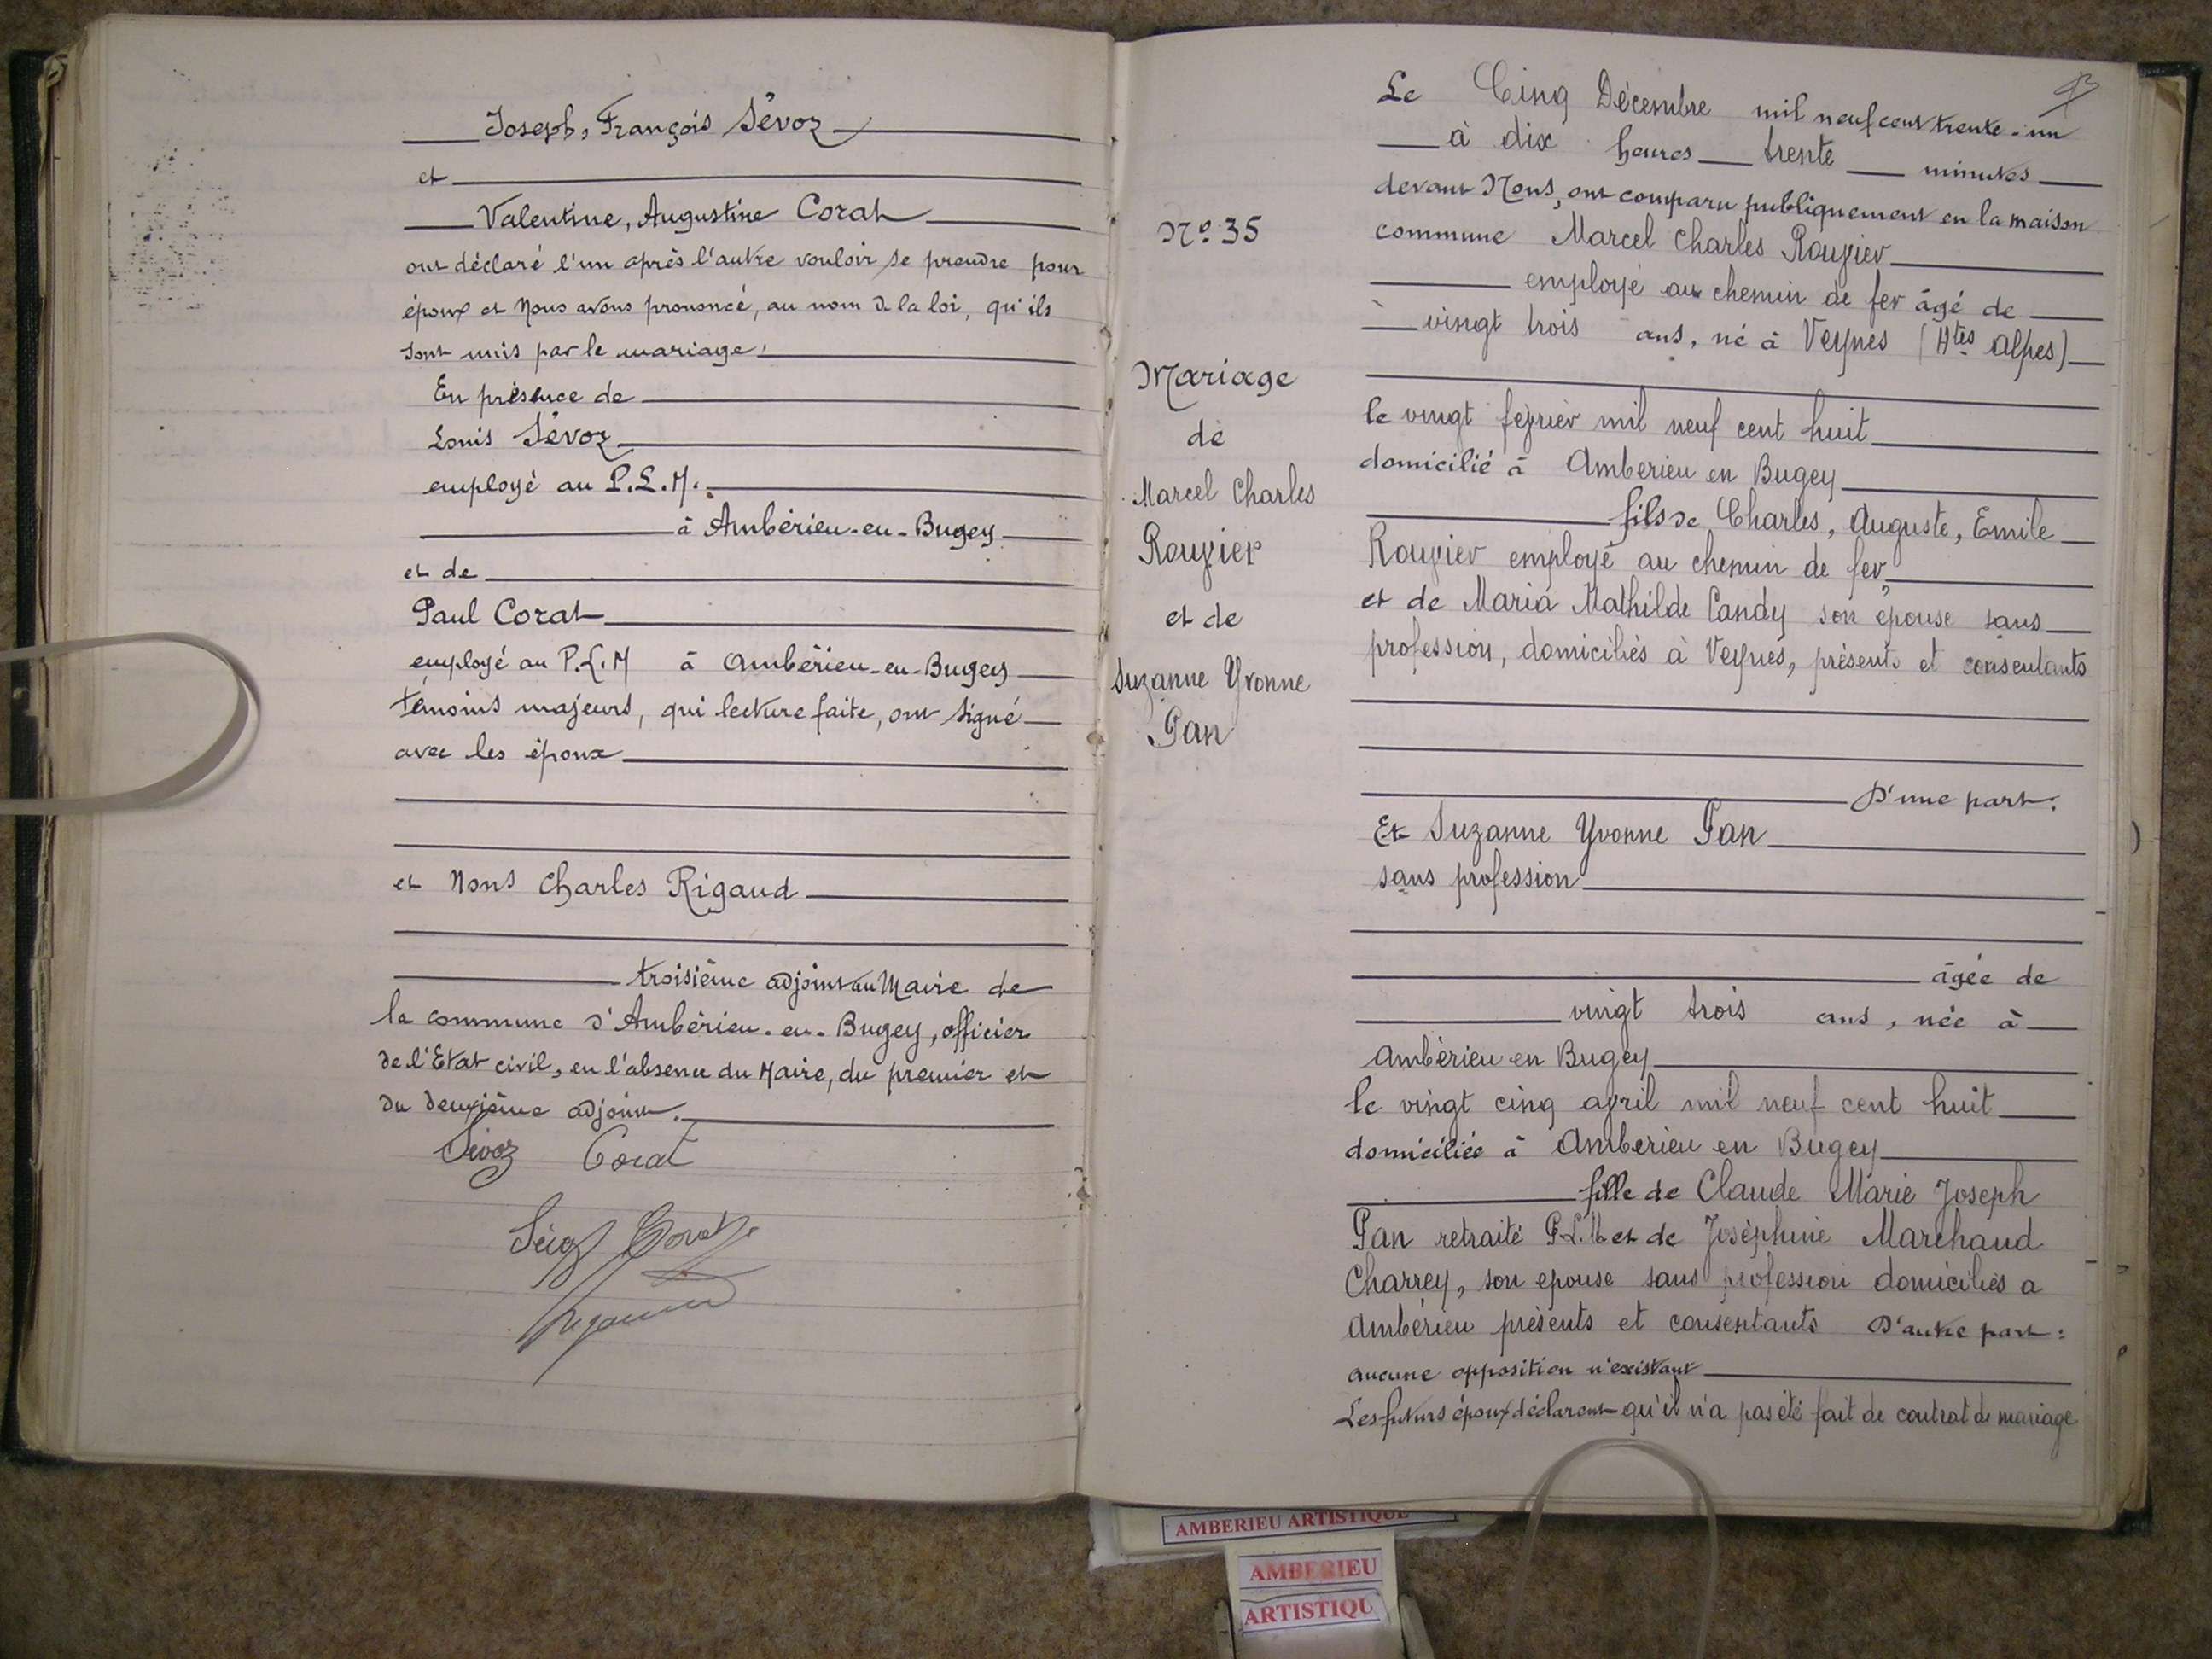 Joseph, François Sévoz
et
Valentine, Augustine Corat
ont déclaré l'un après l'autre vouloir se prendre pour
époux et Nous avons prononcé, au nom de la loi, qu'ils
sont unis par le mariage.
En présence de
Louis Sévoz
employé au P.L.M.
à Ambérieu-en-Bugey
et de
Paul Corat
employé au P.L.M à Ambérieu-en-Bugey
témoins majeurs, qui lecture faite, ont signé
avec les époux
et Nous Charles Rigaud
troisième adjoint au Maire de
la commune d'Ambérieu-en-Bugey, officier
de l'Etat civil, en l'absence du Maire, du premier et
du deuxième adjoint.
Sévoz Corat
Corat
N° 35
Mariage
de
Marcel Charles
Rougier
et de
Suzanne Yvonne
Pan
Le Cinq Décembre mil neuf cent trente-un
à dix heures trente minutes
devant Nous, ont comparu publiquement en la maison
commune Marcel Charles Rougier
employé au chemin de fer âgé de
vingt trois ans, né à Veynes (Htes Alpes)
le vingt février mil neuf cent huit
domicilié à Amberieu en Bugey
fils de Charles, Auguste, Emile
Rougier employé au chemin de fer
et de Maria Mathilde Candy son épouse sans
profession, domiciliés à Veynes, présents et consentants
D'une part:
Et Suzanne Yvonne Pan
sans profession
âgée de
vingt trois ans, née à
Ambérieu en Bugey
le vingt cinq avril mil neuf cent huit
domiciliée à Amberieu en Bugey
fille de Claude Marie Joseph
Pan retraité P.L.M et de Joséphine Marchand
Charrey, son epouse sans profession domiciliés a
Ambérieu présents et consentants D'autre part:
aucune opposition n'existant
Les futurs époux déclarent qu'il n'a pas été fait de contrat de mariage
AMBERIEU ARTISTIQUE
AMBERIEU
ARTISTIQU